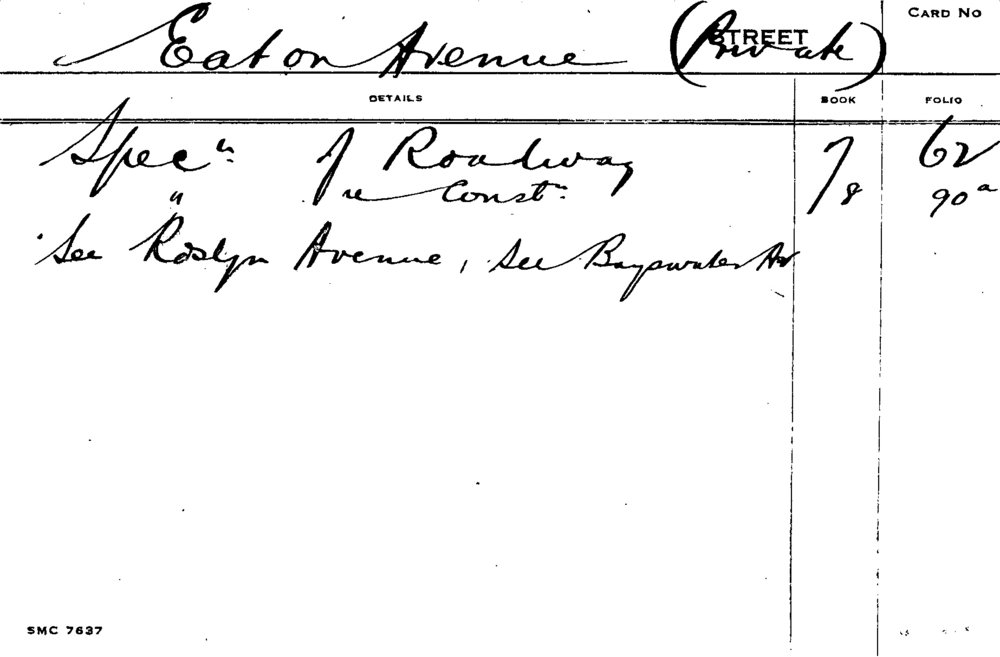 Eaton Avenue (Private) STREET CARD No
DETAILS BOOK FOLIO
Specn. of Roadway 7 62
" re Constn. 8 90a
See Roslyn Avenue, See Bayswater Av
SMC 7637